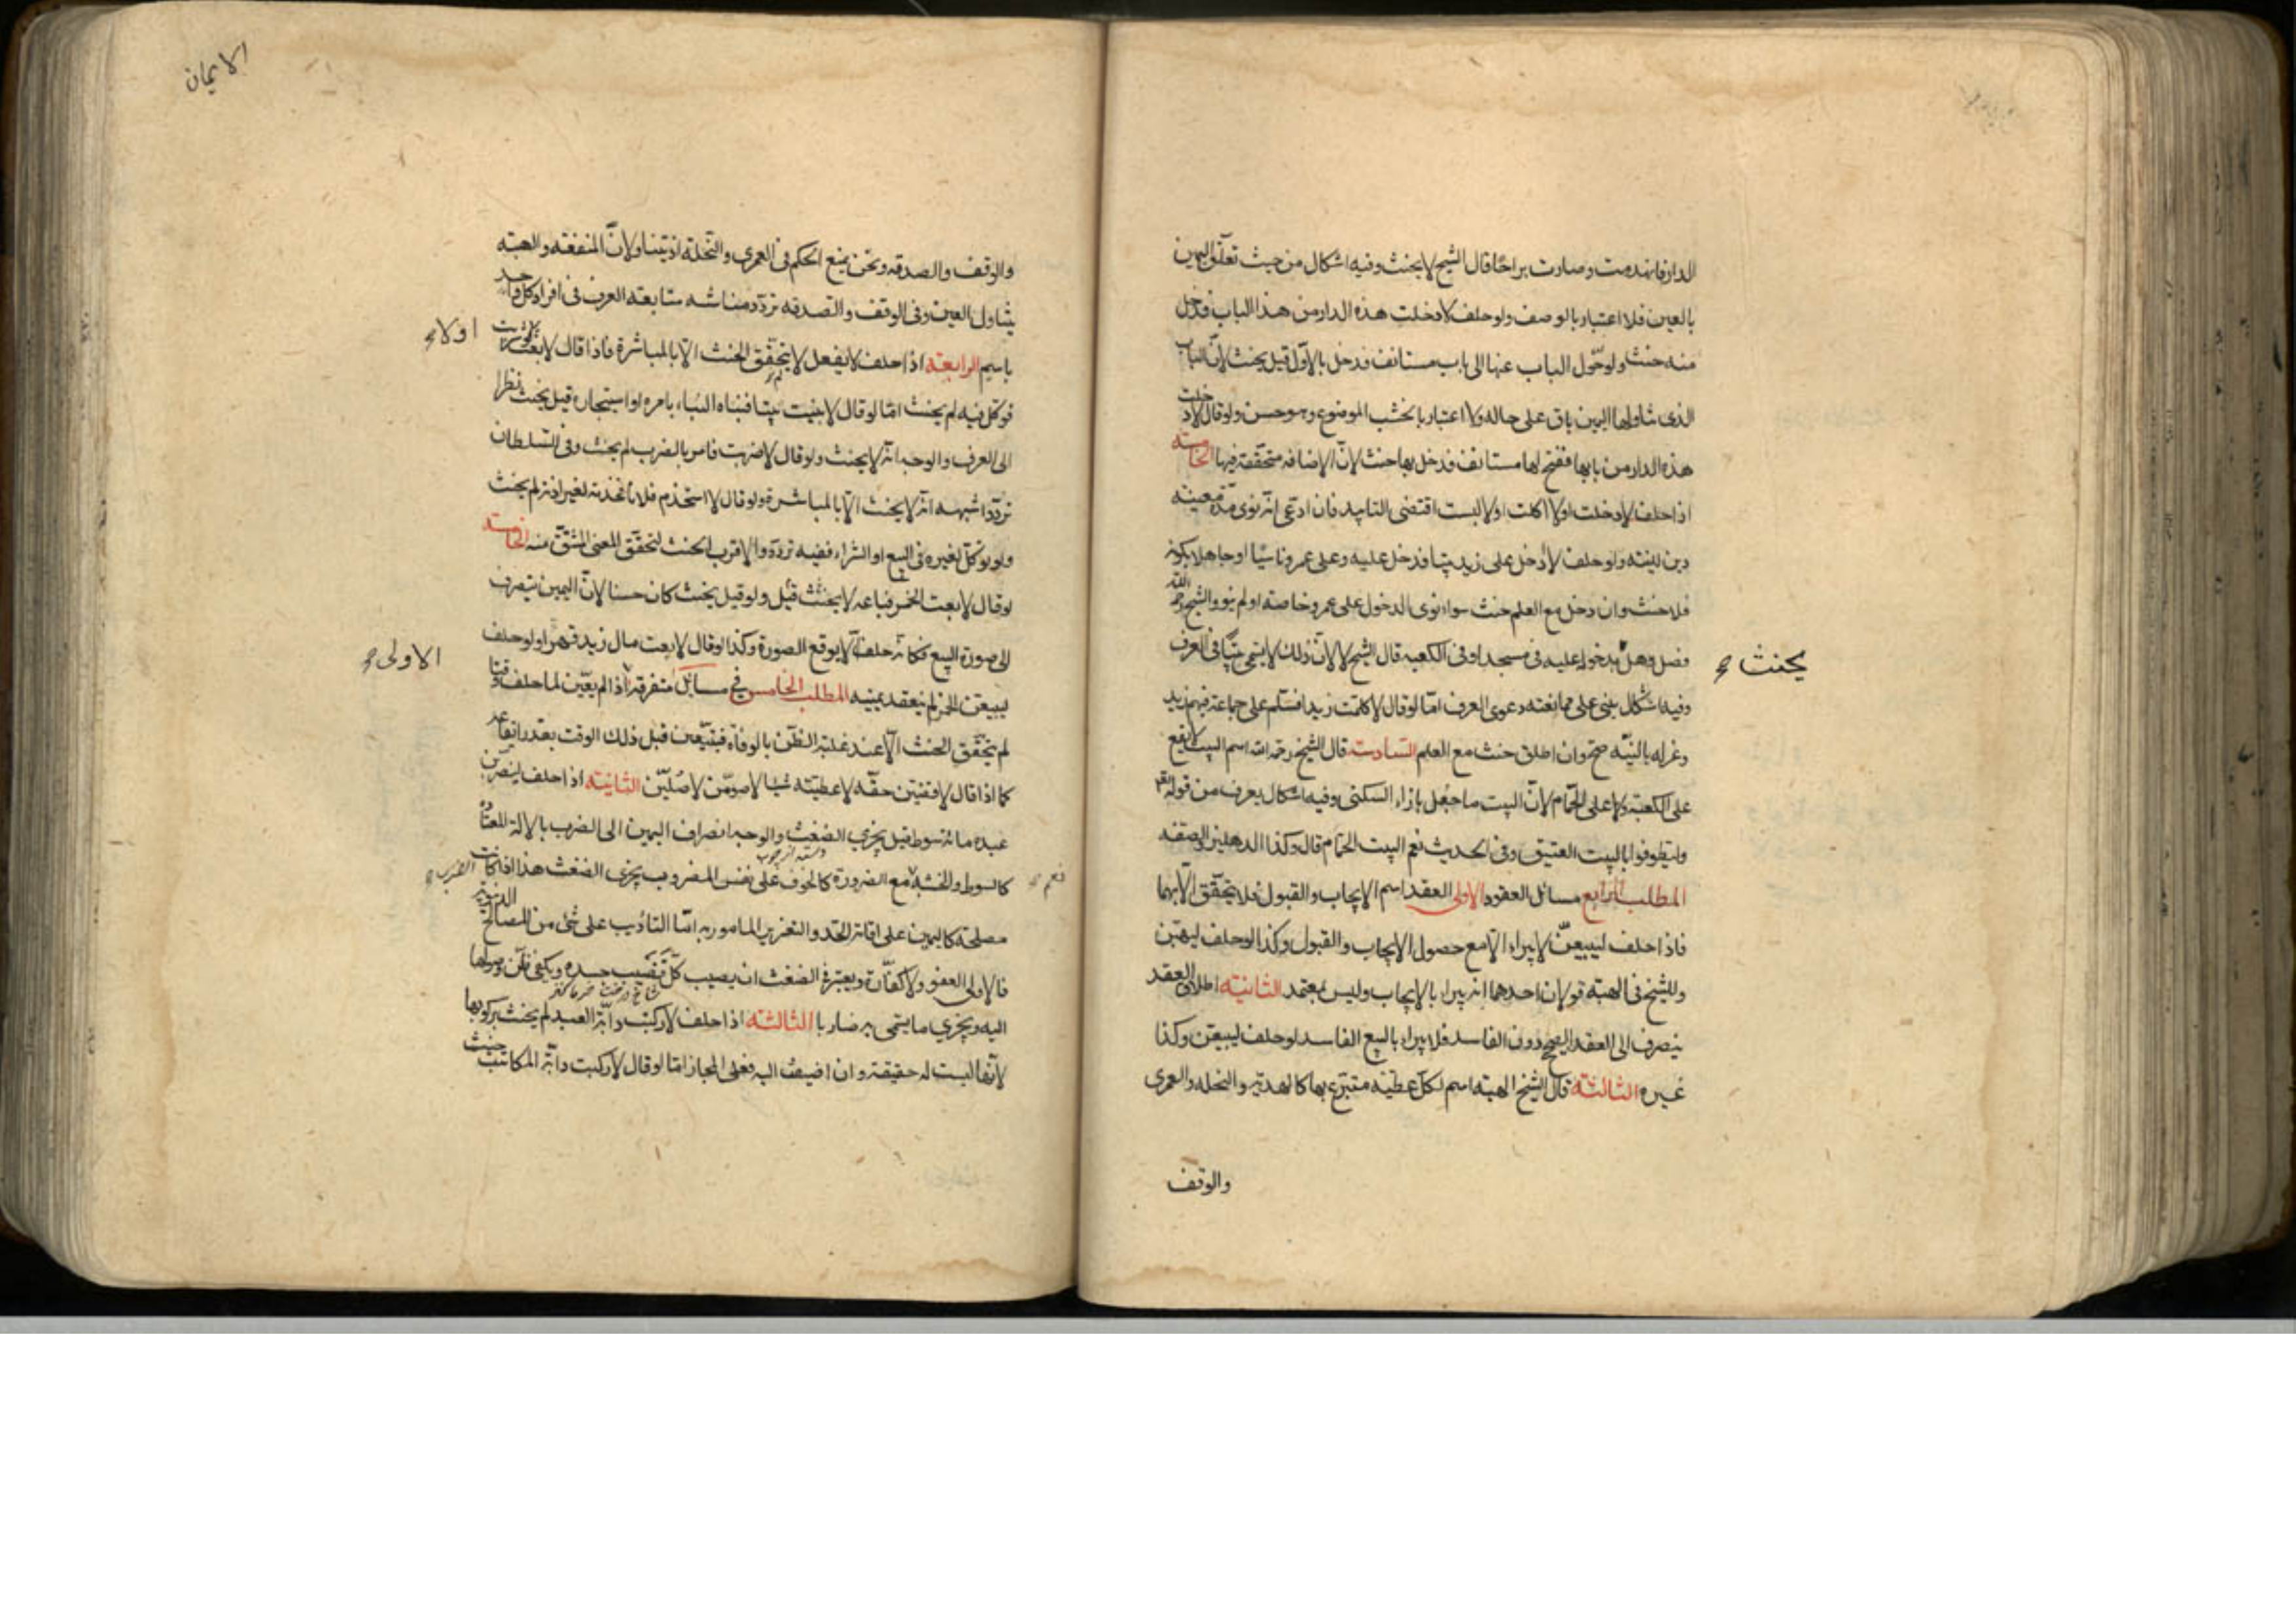 الدار فانهدمت وصارت براحا قال الشيخ لا يحنث وفيه اشكال من حيث تعلق اليمين
بالعين فلا اعتبار بالوصف ولو حلف لا دخلت هذه الدار من هذا الباب فدخل
منه حنث ولو حول الباب عنها الى باب مستانف فدخل بالاول قيل يحنث لان الباب
الذى تناولها اليمين باق على حاله ولا اعتبار بالخشب الموضوع وهو حسن ولو قال لا دخلت
هذه الدار من بابها ففتح لها مستانف فدخل بها حنث لان الاضافه متحققة فيها الخامسة
اذا حلف لا دخلت او لا اكلت او لا لبست اقتضى التابيد فان ادعى انه نوى مدة معينه
دين بنيته ولو حلف لا ادخل على زيد بيتا فدخل عليه وعلى عمرو ناسيا او جاهلا بكونه
فلا حنث وان دخل مع العلم حنث سواء نوى الدخول على عمرو خاصة او لم ينو والشيخ رحمه الله
فصل وهل بدخوله عليه فى مسجد او فى الكعبه قال الشيخ لا لان ذلك لا يسمى بيتا فى العرف
يحنث
وفيه اشكال يبنى على ممانعته دعوى العرف اما لو قال لا كلمت زيدا فسلم على جماعة فيهم زيد
وعزله بالنيه صح وان اطلق حنث مع العلم السادسة قال الشيخ رحمه الله اسم البيت لا يقع
على الكعبة ولا على الحمام لان البيت ما جعل بازاء السكنى وفيه اشكال يعرف من قوله تعالى
وليطوفوا بالبيت العتيق وفى الحديث نعم البيت الحمام قال وكذا الدهليز والصفه
المطلب الرابع مسائل العقود الاولى العقد اسم الايجاب والقبول فلا يتحقق الا بهما
فاذا حلف ليبيعن لا يبراء الا مع حصول الايجاب والقبول وكذا لو حلف ليهبن
وللشيخ فى الهبة قولان احدهما انه يبراء بالايجاب وليس بمعتمد الثانية اطلاق العقد
ينصرف الى العقد الصحيح دون الفاسد فلا يبراء بالبيع الفاسد لو حلف ليبيعن وكذا
غيره الثالثة قال الشيخ الهبة اسم لكل عطيه متبرع بها كالهدية والنحله والعمرى
والوقف
الايمان
والوقف والصدقه ونحن نمنع الحكم فى العمرى والنحلة اذ يتناولان المنفعة والهبة
يتناول العين وفى الوقف والصدقه تردد منشاءه متابعة العرف فى افراد كل واحد
باسم الرابعة اذا حلف لا يفعل لا يتحقق الحنث الا بالمباشرة فاذا قال لا بعت
او لا
فوكل فيه لم يحنث اما لو قال لا بنيت بيتا فبناه البناء بامره او استيجاره قيل يحنث نظرا
الى العرف والوجه انه لا يحنث ولو قال لا ضربت فامر بالضرب لم يحنث وفى السلطان
تردد اشبهه انه لا يحنث الا بالمباشرة ولو قال لا استخدم فلانا فخدمه لغير اذنه لم يحنث
ولو توكل لغيره فى البيع او الشراء ففيه تردد والاقرب الحنث لتحقق المعنى المشتق منه الخامسة
لو قال لا بعت الخمر فباعه لا يحنث قيل ولو قيل يحنث كان حسنا لان اليمين ينصرف
الى صورة البيع فكانه حلف ان لا يوقع الصورة وكذا لو قال لا بعت مال زيد قهرا ولو حلف
ليبيعن الخمر لم ينعقد يمينه المطلب الخامس فى مسائل متفرقة اذا لم يعين لما حلف وقتا
الاولى
لم يتحقق الحنث الا عند غلبة الظن بالوفاة فيتعين قبل ذلك الوقت بقدر ايقاعه
كما اذا قال لاقضين حقه لاعطيته شيئا لاصومن لاصلين الثانيه اذا حلف ليضربن
عبده مائة سوط قيل يجزى الضغث والوجه انصراف اليمين الى الضرب بالالة المعتادة
كالسوط والخشبة مع الضرورة كالخوف على نفس المضروب يجزى الضغث هذا اذا كانت الضرب
نعم
دسته از چوب
مصلحة كاليمين على اقامة الحد والتعزير المامور به اما التاديب على شئ من المصالح الدنيوية
فالاولى العفو ولا كفارة ويعتبر فى الضغث ان يصيب كل قضيب جسده ويكفى ظن وصولها
اليه ويجزى ما يسمى به ضاربا الثالثة اذا حلف لا ركبت دابة العبد لم يحنث بركوبها
لانها ليست له حقيقة وان اضيفت اليه فعلى المجاز اما لو قال لا ركبت دابة المكاتب حنث